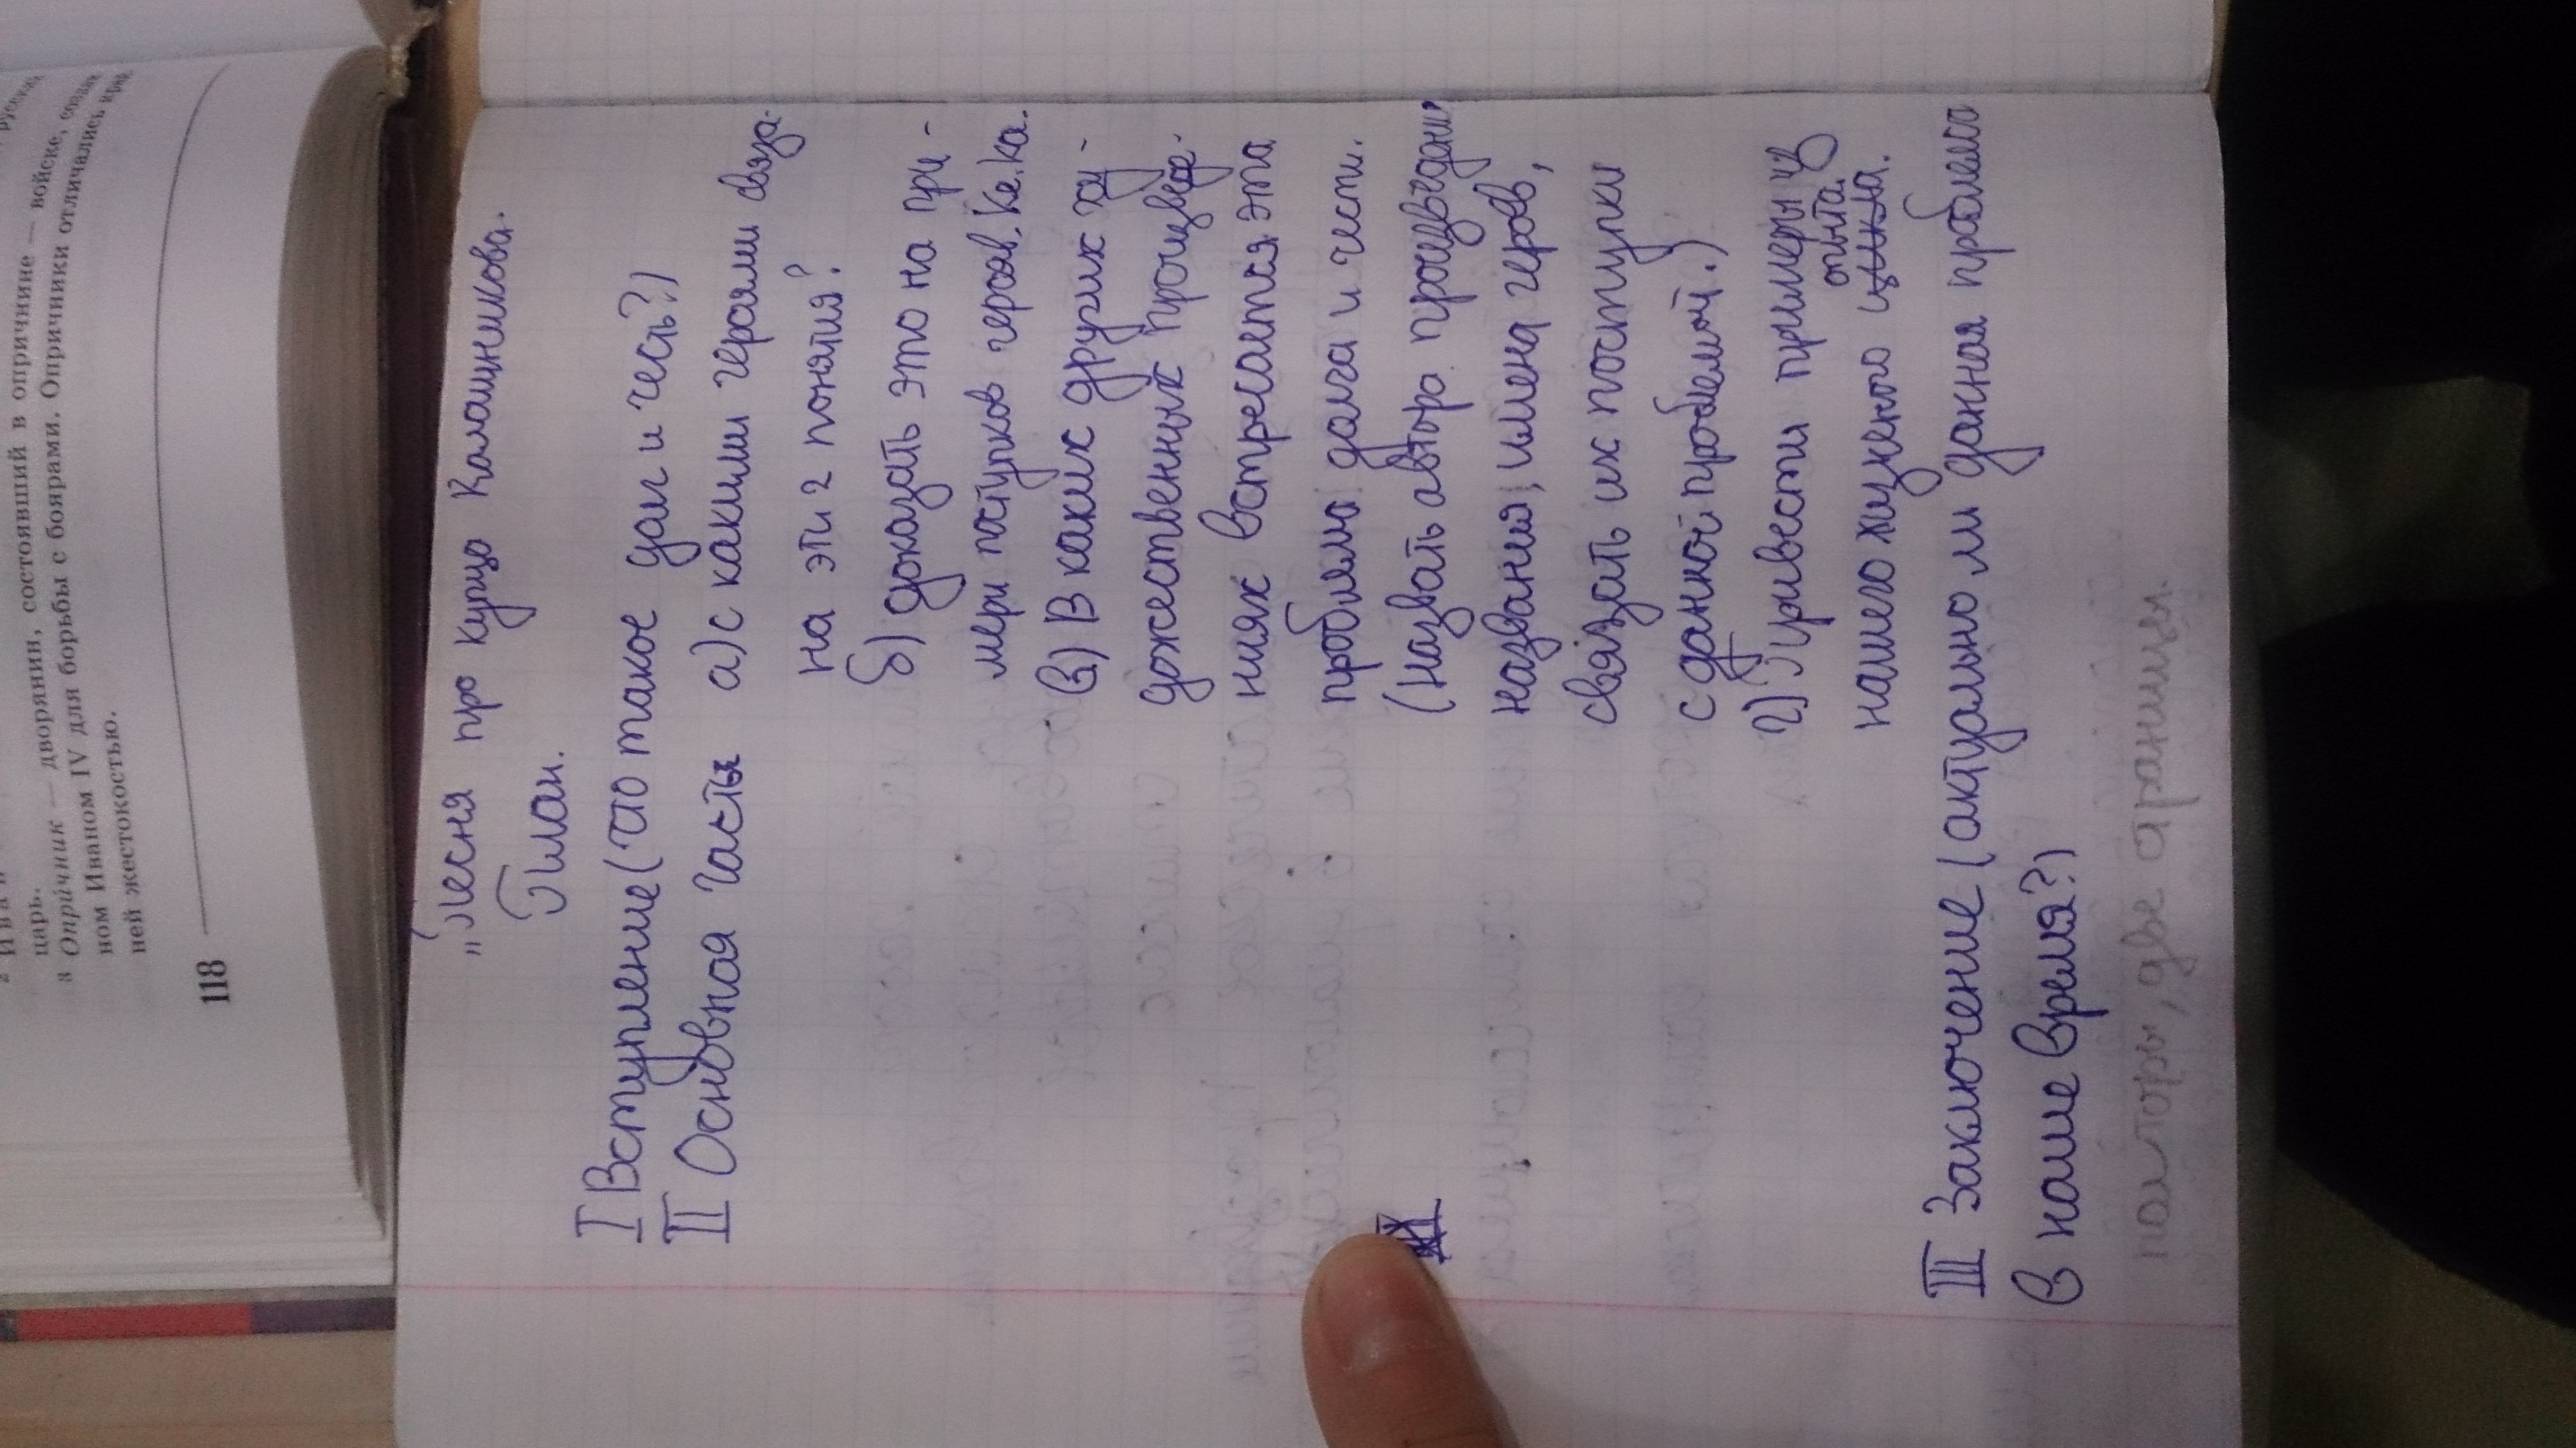 царь.
3 Опричник — дворянин, состоявший в опричнине — войске, созда
ном Иваном IV для борьбы с боярами. Опричники отличались край
ней жестокостью.
118
„Песня про купца Калашникова.
План.
I Вступление (что такое долг и честь?)
II Основная часть а) с какими героями связа-
на эти 2 понятия?
б) доказать это на при-
мери поступков героев. Ке. Ка.
в) В каких других ху-
дожественных произведе-
ниях встречается эта
проблема долга и чести.
(назвать автора произведани
названия, имена героев,
связать их поступки
с данной проблемой.)
г) Привести примеры из
опыта.
нашего жизненого
III Заключение (актуально ли данная проблема
в наше время?)
полторы, две страницы.